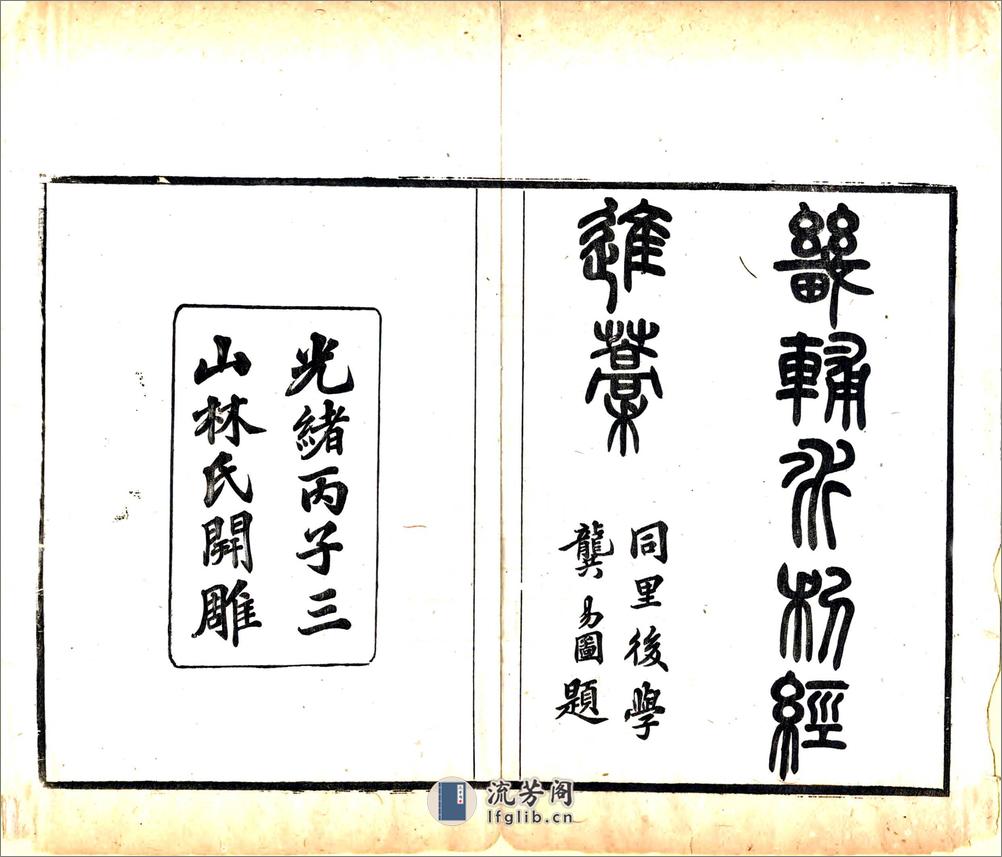 畿輔水利經
進藁
同里後學
龔易圖題
光緒丙子三
山林氏開雕
流芳阁
lfglib.cn